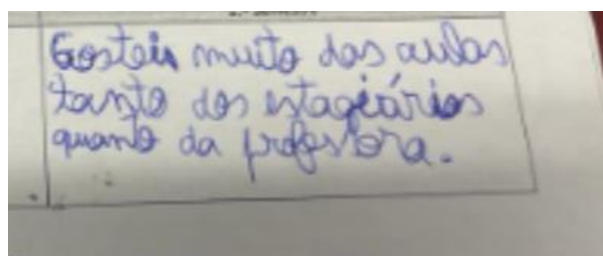 Gosteis muito das aulas
tanto dos estagiários
quanto da professora.